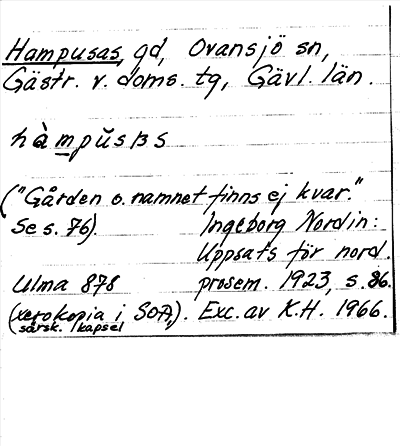 Hampusas, gd, Ovansjö sn,
Gästr. v. doms. tg, Gävl. län.
hàmpŭsas
("Gården o. namnet finns ej kvar."
Se s. 76). Ingeborg Nordin:
Uppsats för nord.
Ulma 878 prosem. 1923, s. 86.
(xerokopia i SOA,). Exc. av K.H. 1966.
särsk. kapsel